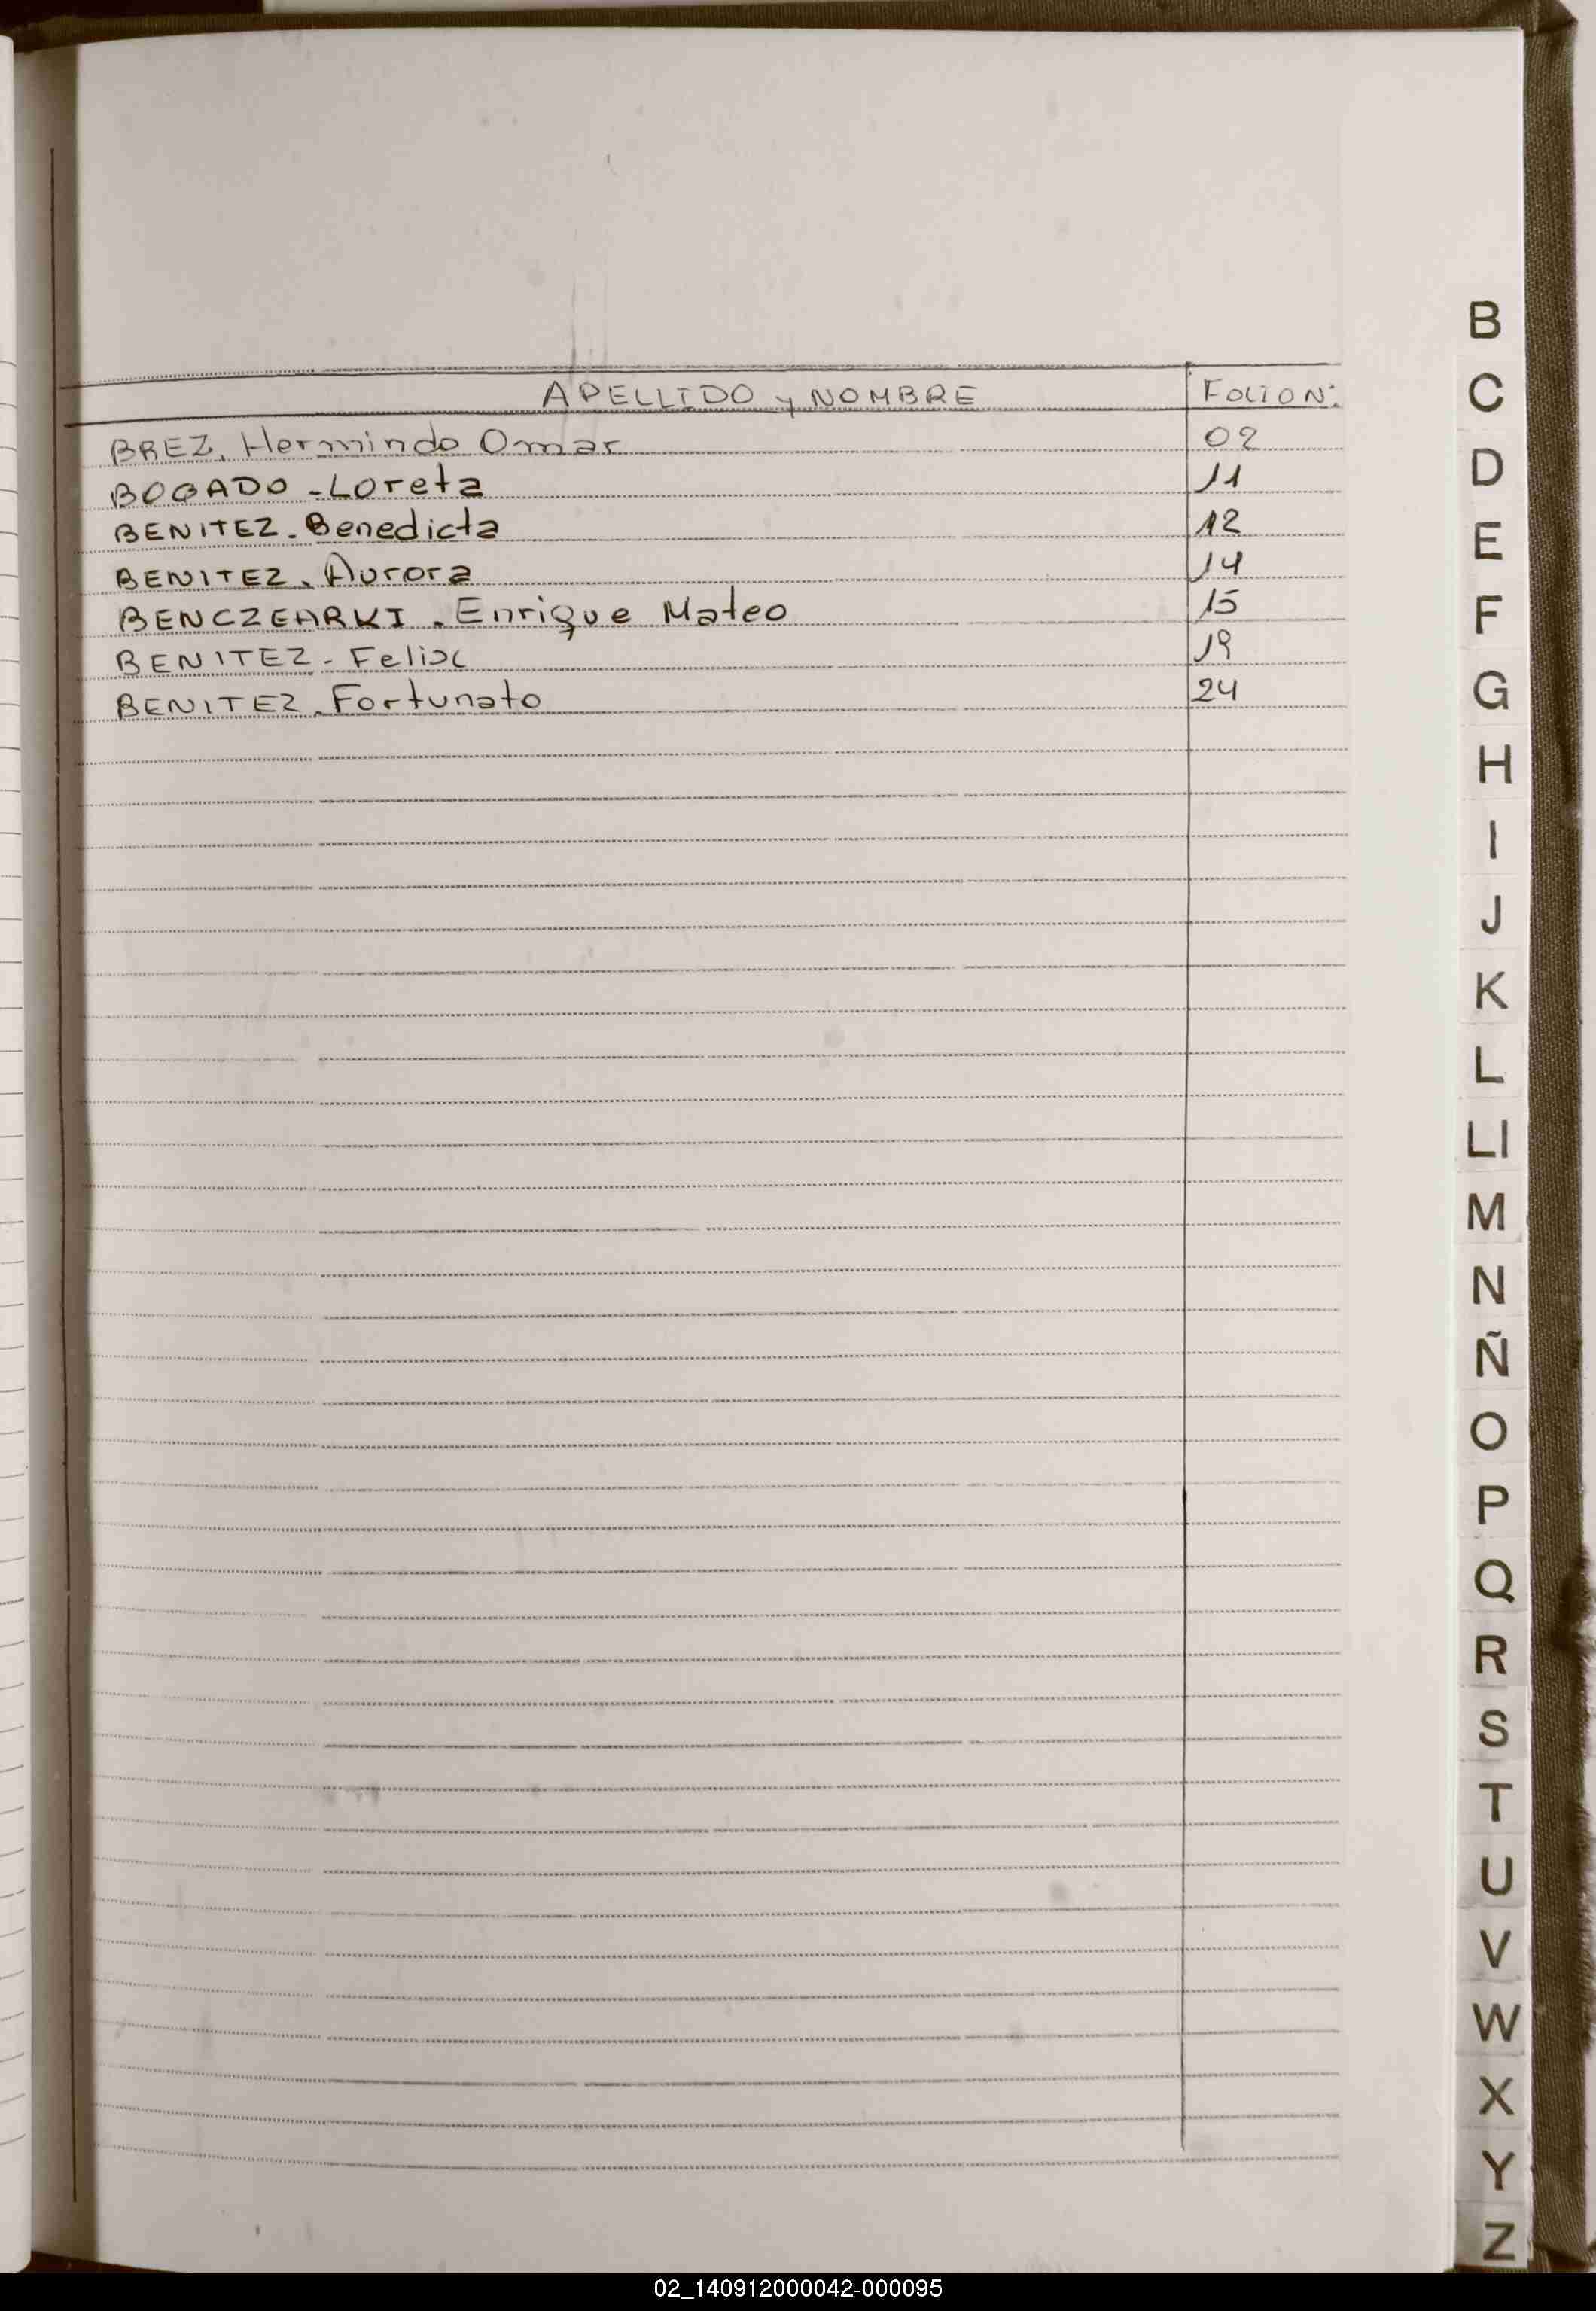 APELLIDO y NOMBRE FOLIO N:
BREZ. Hermindo Omar 02
BOGADO - Loreta 11
BENITEZ - Benedicta 12
BENITEZ. Aurora 14
BENCZEARKI. Enrique Mateo 15
BENITEZ - Felix 19
BENITEZ. Fortunato 24
B
C
D
E
F
G
H
I
J
K
L
Ll
M
N
Ñ
O
P
Q
R
S
T
U
V
W
X
Y
Z
02_140912000042-000095